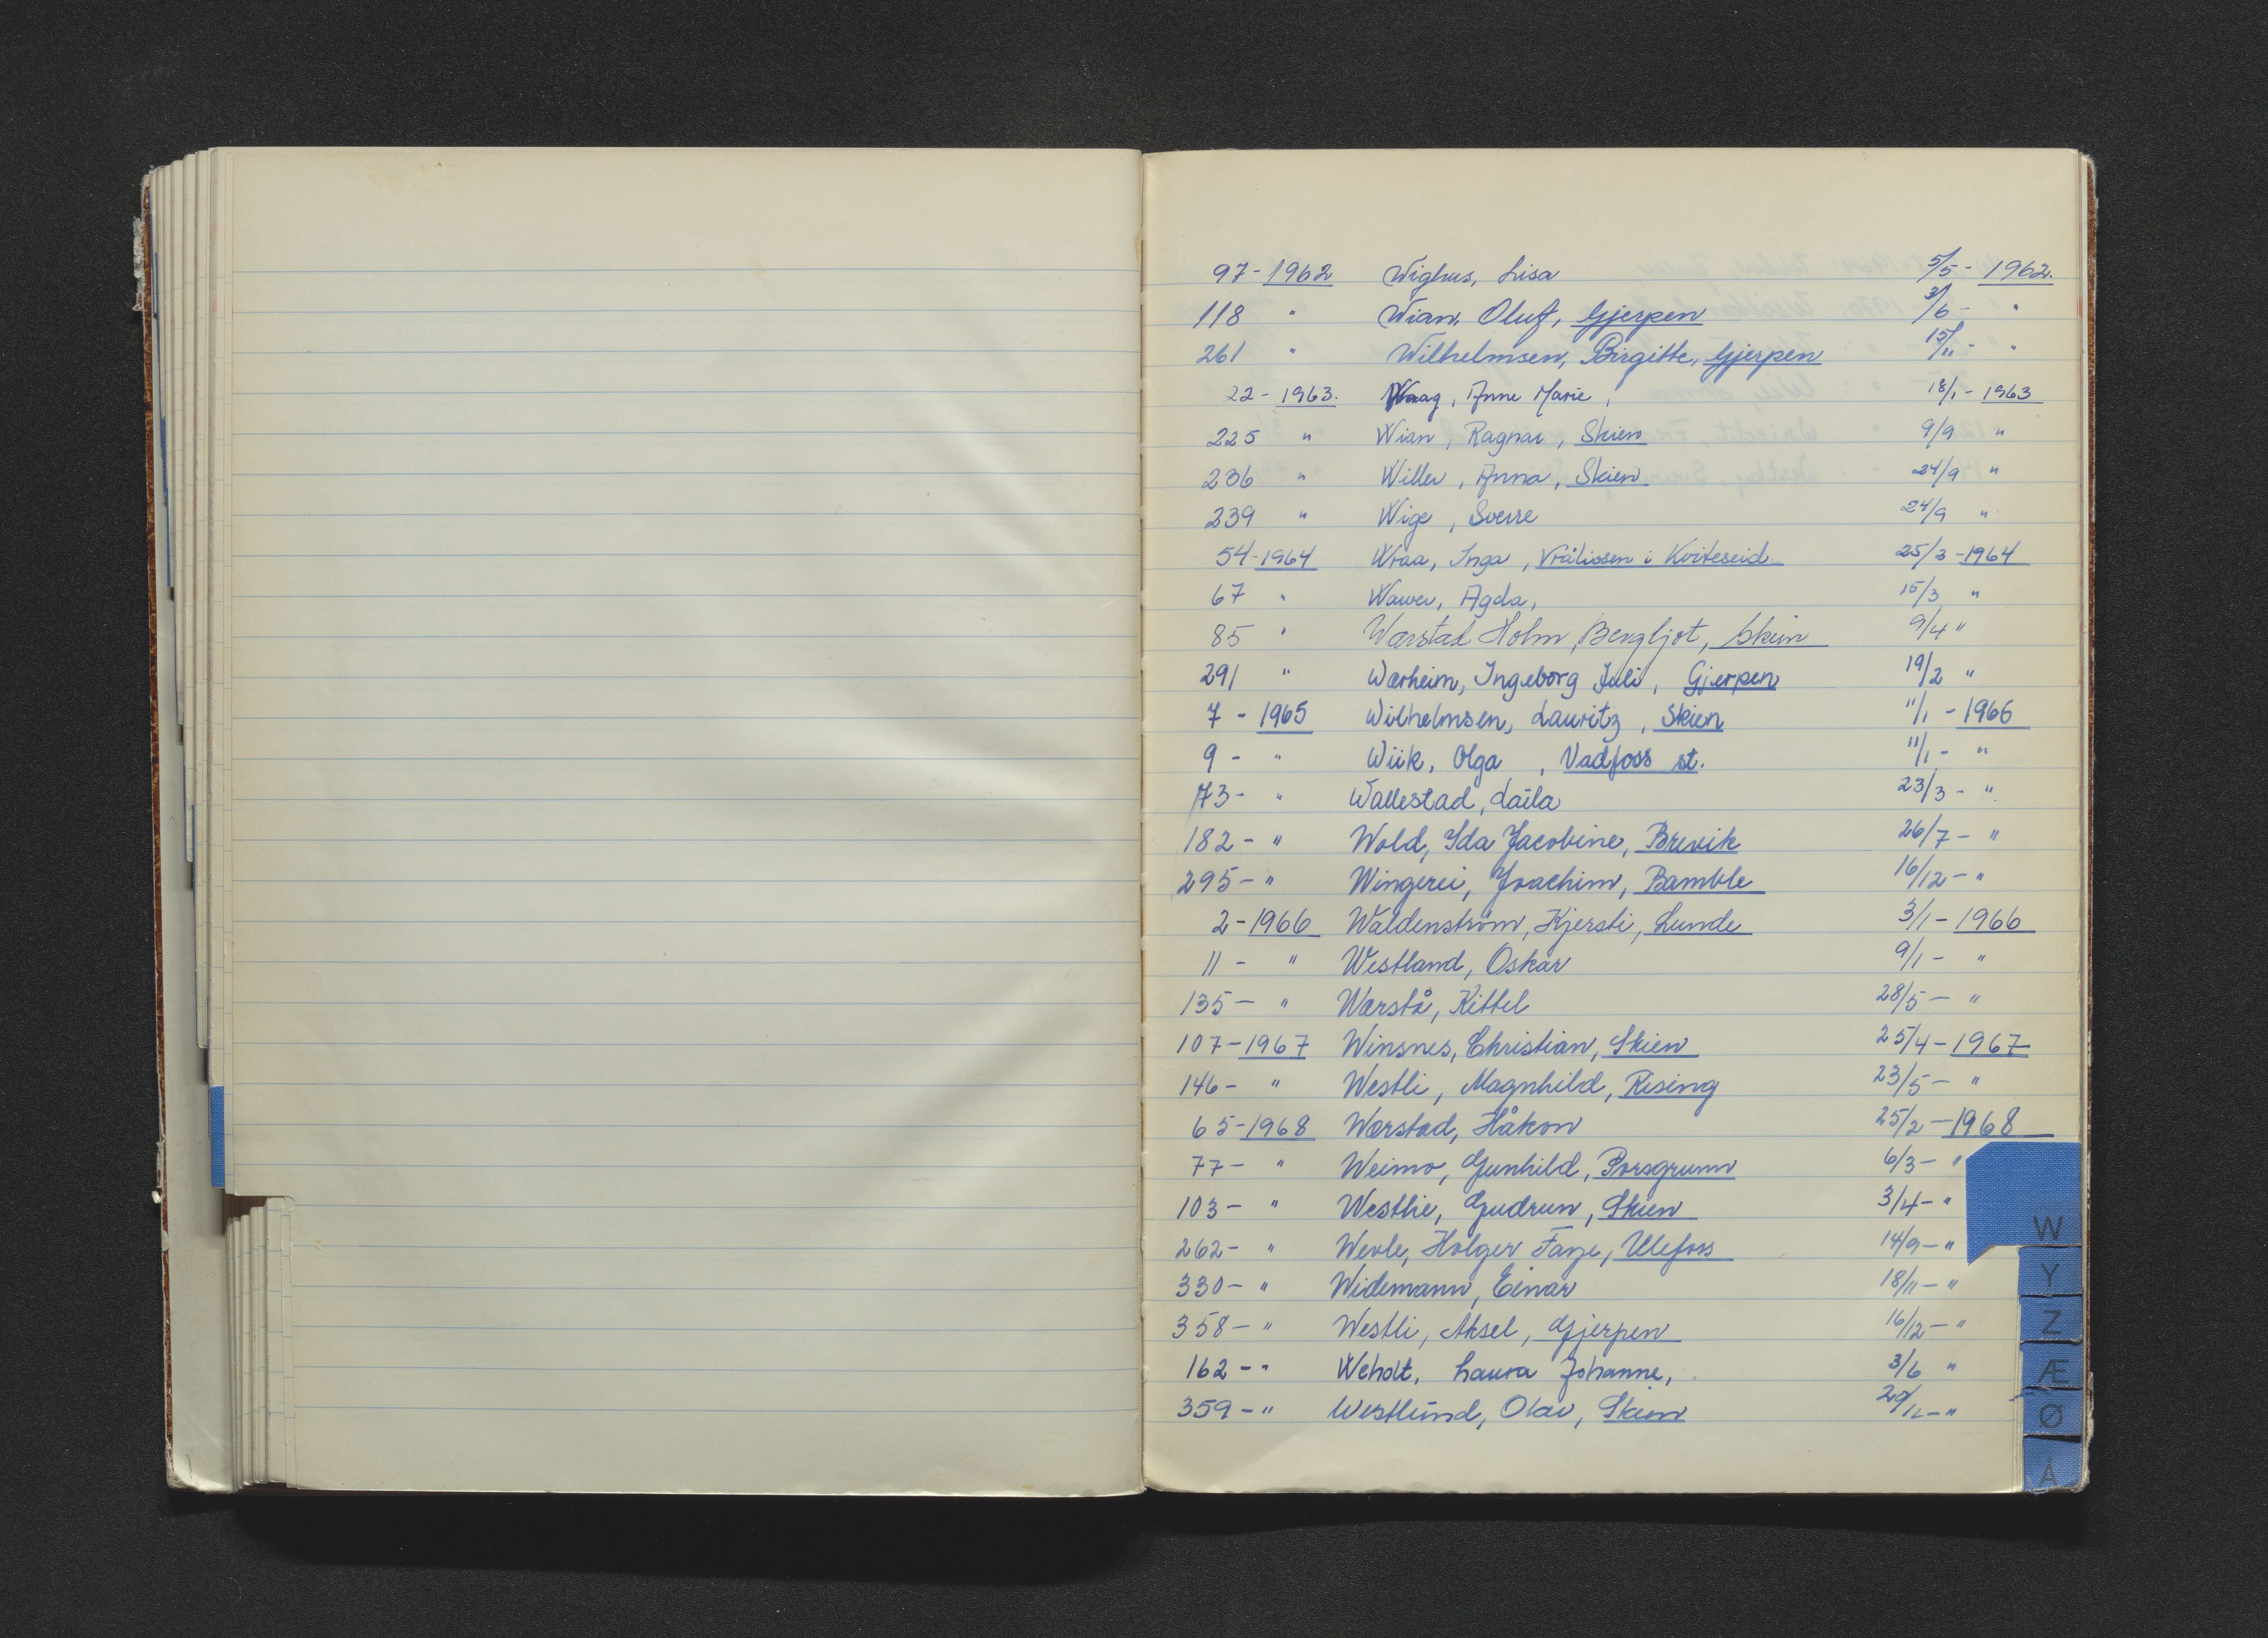 97 - 1962 Wighus, Lisa 5/5 - 1962.
118 " Wian, Oluf, Gjerpen 3/6 - "
261 " Wilhelmsen, Birgitte, Gjerpen 15/11 - "
22 - 1963. Waag, Anne Marie, 18/1 - 1963
225 " Wian, Ragnar, Skien 9/9 "
236 " Willer, Anna, Skien 24/9 "
239 " Wige, Sverre 24/9 "
54 - 1964 Wraa, Inga, Vråliosen i Kviteseid 25/3 - 1964
67 " Wawer, Agda, 15/3 "
85 " Wærstad Holm, Bergljot, Skien 9/4 "
291 " Wærheim, Ingeborg Juli, Gjerpen 19/2 "
7 - 1965 Wilhelmsen, Lauritz, Skien 11/1 - 1965
9 - " Wiik, Olga, Vadfoss st. 11/1 - "
73 - " Wallestad, Laila 23/3 - "
182 - " Wold, Ida Jacobine, Brevik 26/7 - "
295 - " Wingerei, Joachim, Bamble 16/12 - "
2 - 1966 Waldenstrøm, Kjersti, Lunde 3/1 - 1966
11 - " Westland, Oskar 9/1 - "
135 - " Wærstå, Kittel 28/5 - "
107 - 1967 Winsnes, Christian, Skien 25/4 - 1967
146 - " Westli, Magnhild, Rising 23/5 - "
65 - 1968 Wærstad, Håkon 25/2 - 1968
77 - " Weimo, Gunhild, Porsgrunn 6/3 - "
103 - " Westlie, Gudrun, Skien 3/4 - "
262 - " Wevle, Holger Farje, Ulefoss 14/9 - "
330 - " Widemann, Einar 18/11 - "
358 - " Westli, Aksel, Gjerpen 16/12 - "
162 - " Weholt, Laura Johanne, 3/6 "
359 - " Westlund, Olav, Skien - "
W
Y
Z
Æ
Ø
Å